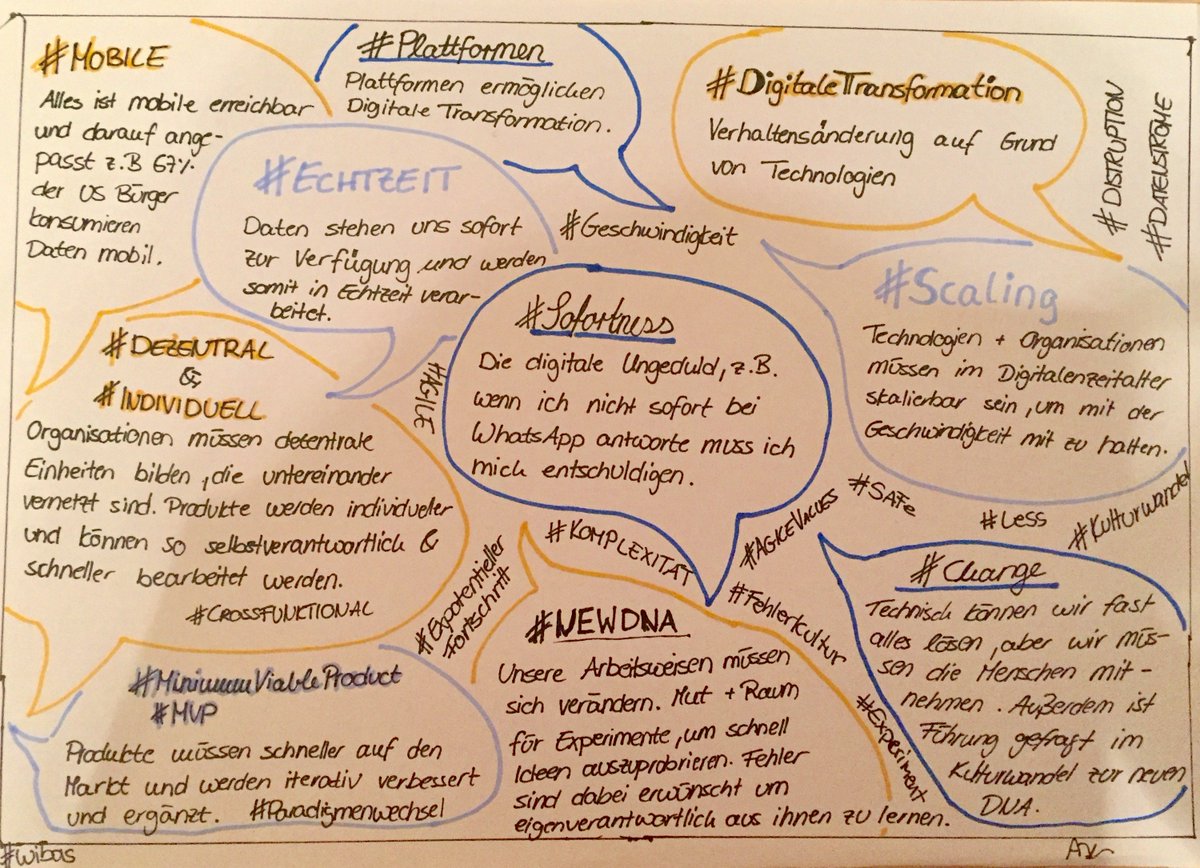 #MOBILE
Alles ist mobile erreichbar
und darauf ange-
passt z.B 67%
der US Bürger
konsumieren
Daten mobil.
#Plattformen
Plattformen ermöglichen
Digitale Transformation.
#DigitaleTransformation
Verhaltensänderung auf Grund
von Technologien
#DISTRUPTION
#DATENSTRÖME
#ECHTZEIT
Daten stehen uns sofort
zur Verfügung und werden
somit in Echtzeit verar-
beitet.
#Geschwindigkeit
#Scaling
Technologien + Organisationen
müssen im Digitalenzeitalter
skalierbar sein, um mit der
Geschwindigkeit mit zu halten.
#Sofortness
Die digitale Ungeduld, z.B.
wenn ich nicht sofort bei
WhatsApp antworte muss ich
mich entschuldigen.
#AGILE
#DEZENTRAL
&
#INDIVIDUELL
Organisationen müssen dezentrale
Einheiten bilden, die untereinander
vernetzt sind. Produkte werden individueller
und können so selbstverantwortlich &
schneller bearbeitet werden.
#CROSSFUNKTIONAL
#Expotentieller
fortschritt
#KOMPLEXITÄT
#AGILEVALUES
#SAFe
#Less
#Kulturwandel
#Fehlerkultur
#Experiment
#Change
Technisch können wir fast
alles lösen, aber wir müs-
sen die Menschen mit-
nehmen. Außerdem ist
Führung gefragt im
Kulturwandel zur neuen
DNA.
#NEWDNA
Unsere Arbeitsweisen müssen
sich verändern. Mut + Raum
für Experimente, um schnell
Ideen auszuprobrieren. Fehler
sind dabei erwünscht um
eigenverantwortlich aus ihnen zu lernen.
#MinimumViableProduct
#MVP
Produkte müssen schneller auf den
Markt und werden iterativ verbessert
und ergänzt. #Paradigmenwechsel
#wibas